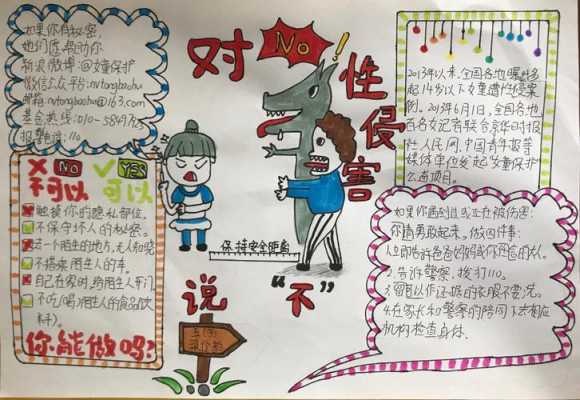 如果你有秘密,
她们愿帮助你
新浪微博:@女童保护
微信公众平台:nvtongbaohu
邮箱:nvtongbaohu@163.com
报警电话:110
对
NO
!
性
侵
害
2013年以来,全国各地曝光多
起14岁以下女童遭性侵案
例。2013年6月1日,全国各地
百名女记者联合京华时报
社、人民网、中国青年报等
媒体单位发起“女童保护”
公益项目。
NO
YES
不可以
可以
触摸你的隐私部位。
不保守坏人的秘密。
去一个陌生的地方,无人知晓
不搭乘陌生人的车。
自己在家时,给陌生人开门。
不吃(喝)陌生人的食品(饮
料)。
你能做吗?
保持安全距离
说
“不”
如果你遇到性或正在被伤害:
你请勇敢起来,做四件事:
2.告诉警察,拨打110。
3.留以作证据的衣服不要洗。
4.在家长和警察的陪同下去相应
机构检查身体.